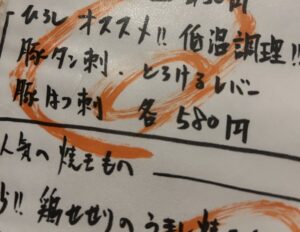 50円
ひろし オススメ!! 低温調理!!
豚タン刺. とろけるレバー
豚はつ刺 各 580円
人気の焼きもの
!! 鶏せせりのうまし焼